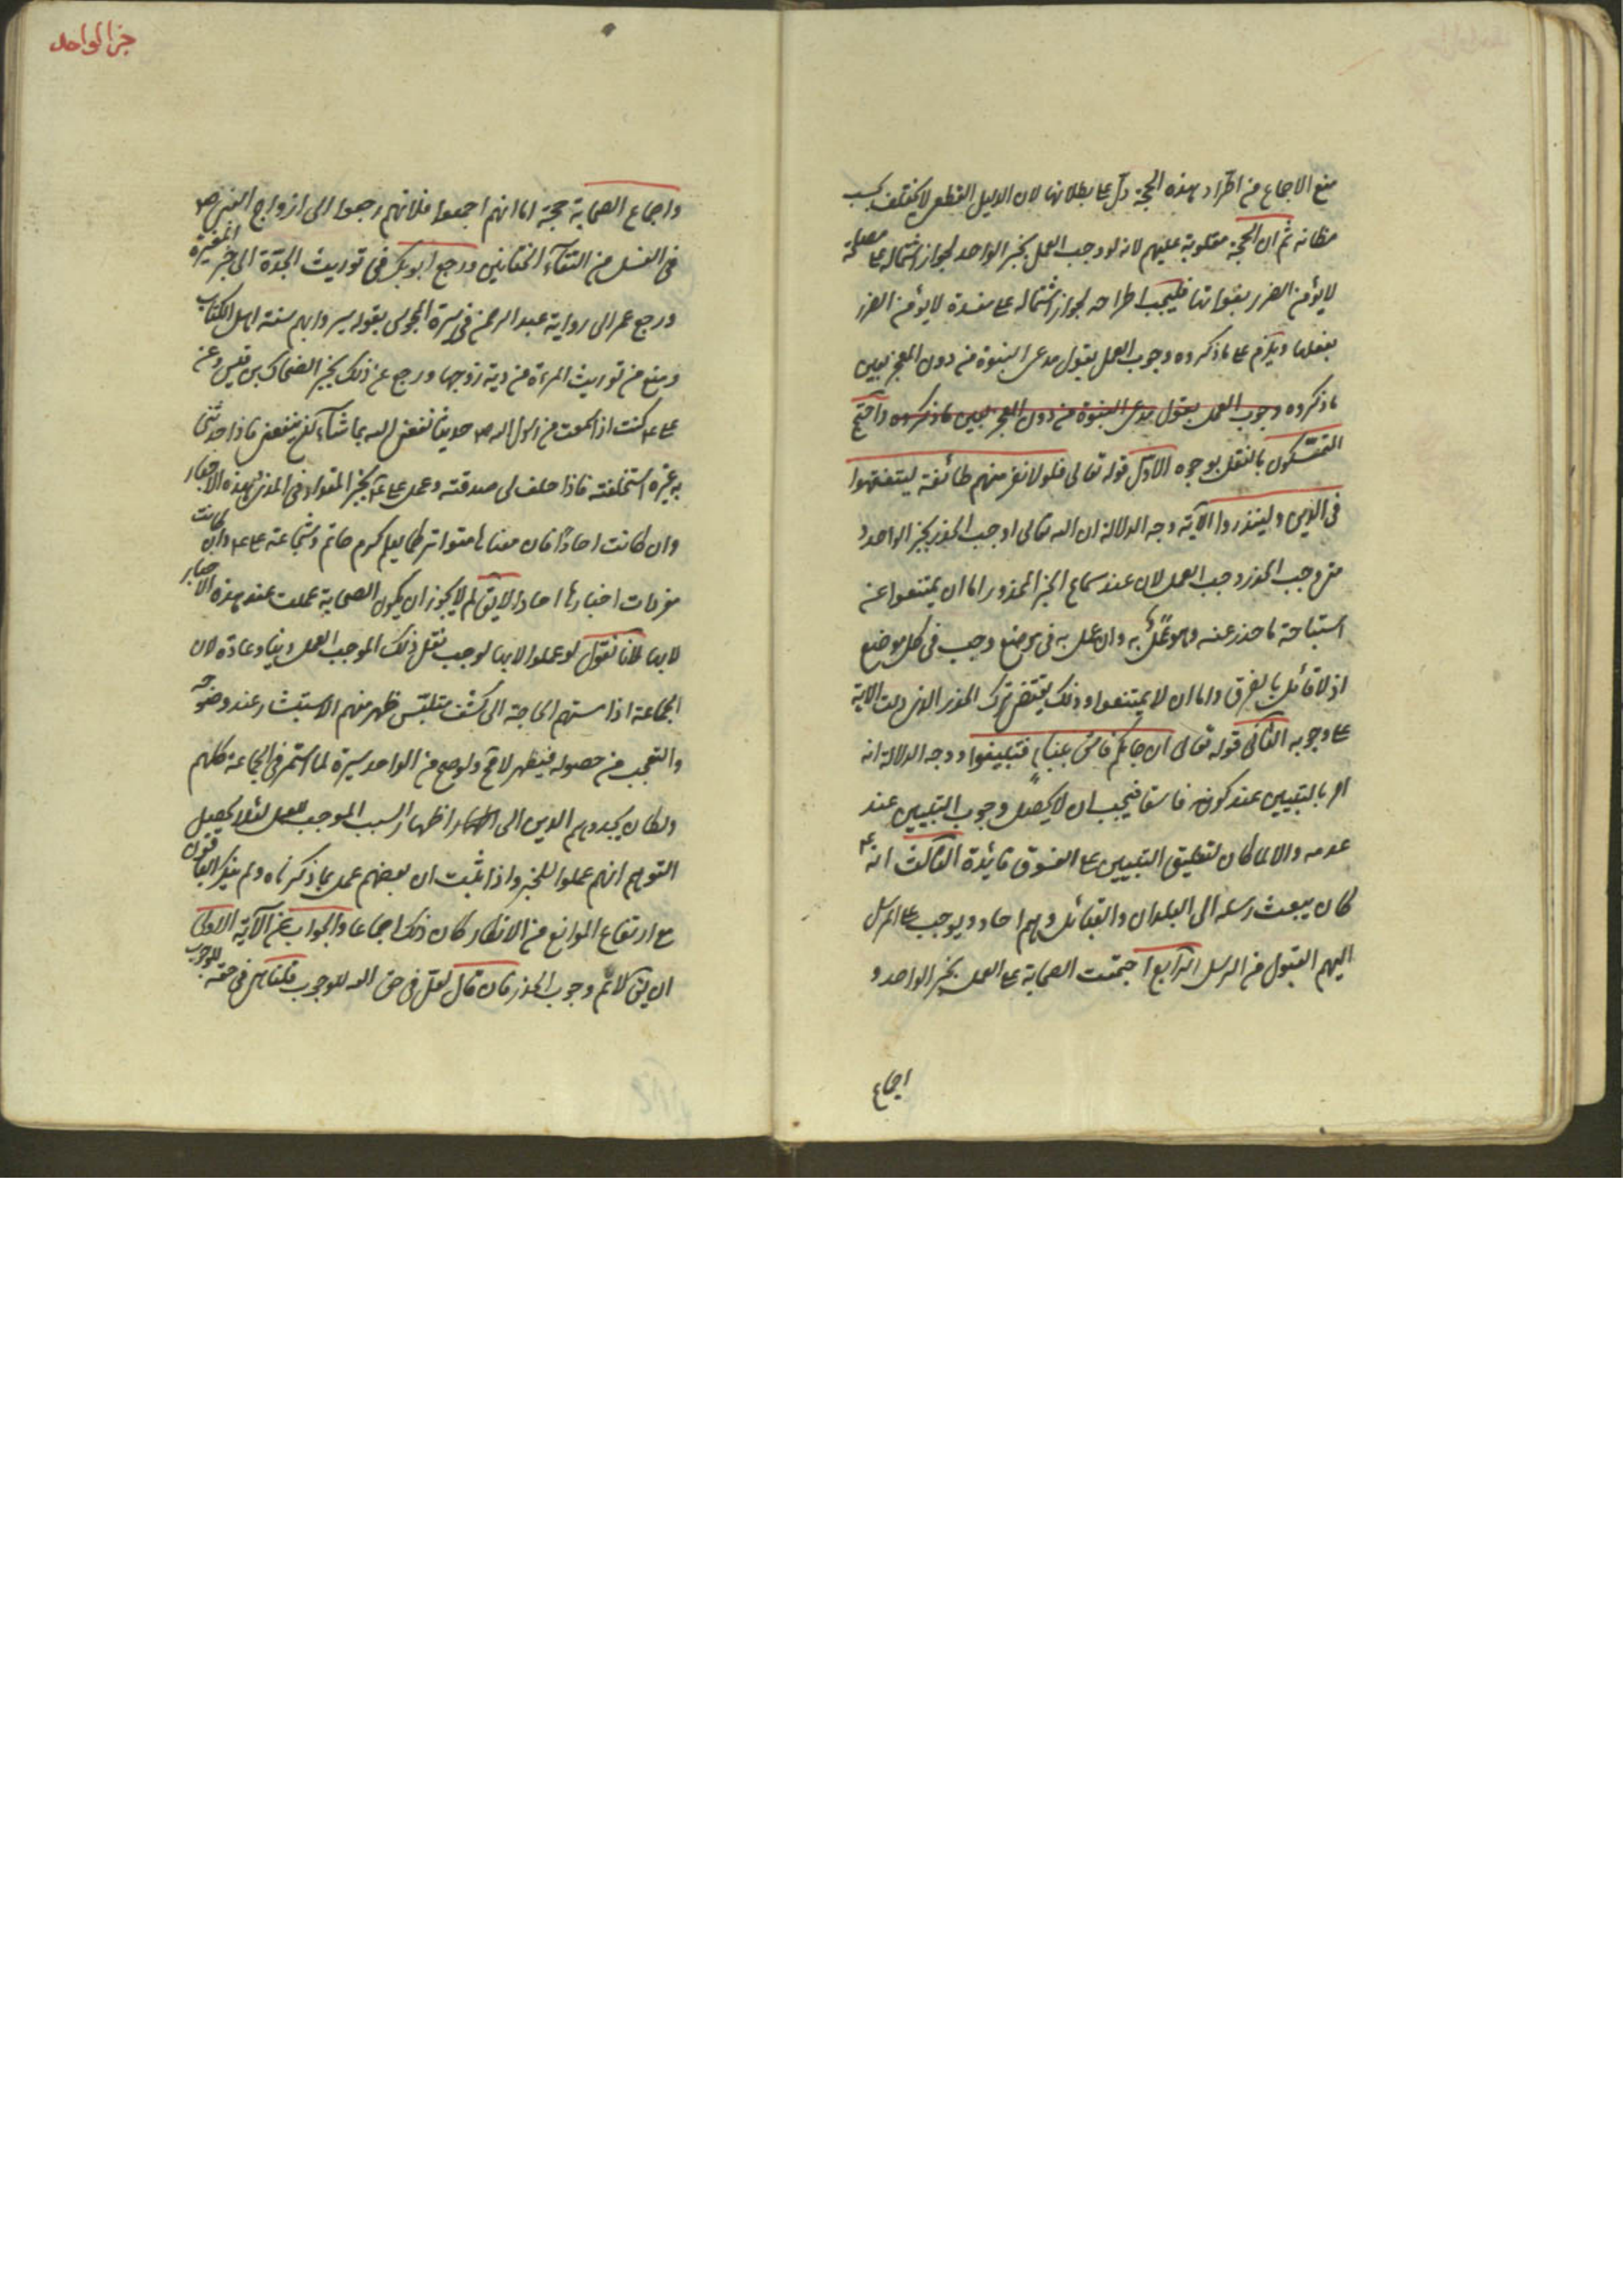 منع الاجماع من اطراد هذه الحجة دل على بطلانها لان الدليل القطعى لا يختلف بحسب
مظانه ثم ان الحجة مقلوبة عليهم لانه لو وجب العمل بخبر الواحد لجواز اشتماله على مصلحة
لا يؤمن الضرر بفواتها فليجب اطراحه لجواز اشتماله على مفسدة لا يؤمن الضرر
بفعلها ويلزم على ما ذكروه وجوب العمل بقول مدعى النبوة من دون المعجز بعين
ما ذكروه وجوب العمل بقول مدعى النبوة من دون المعجز بعين ما ذكروه واحتج
المتمسكون بالنقل بوجوه الاول قوله تعالى فلولا نفر منهم طائفة ليتفقهوا
فى الدين ولينذروا الآية وجه الدلالة ان الله تعالى اوجب الحذر بخبر الواحد و
متى وجب الحذر وجب العمل لان عند سماع الخبر المحذور اما ان يمتنعوا عن
استباحة ما حذر عنه وهو عمل به وان عمل به فى موضع وجب فى كل موضع
اذ لا قائل بالفرق واما ان لا يمتنعوا وذلك يقتضى ترك الحذر الذى دلت الاية
على وجوبه الثانى قوله تعالى ان جاءكم فاسق بنبأ فتبينوا ووجه الدلالة انه
امر بالتبيين عند كونه فاسقا فيجب ان لا يحصل وجوب التبيين عند
عدمه والا لما كان لتعليق التبيين على الفسوق فائدة الثالث انه ع
كان يبعث رسله الى البلدان والقبائل وهم احاد ويوجب على المرسل
اليهم القبول من الرسل الرابع اجتمعت الصحابة على العمل بخبر الواحد و
اجماع
خبر الواحد
واجماع الصحابة حجة اما انهم اجمعوا فلانهم رجعوا الى ازواج النبى ص
فى الغسل من التقاء الختانين ورجع ابو بكر فى توريث الجدة الى خبر المغيرة
ورجع عمر الى رواية عبد الرحمن فى سيرة المجوس بقوله سيروا بهم سنة اهل الكتاب
ومنع من توريث المرءة من دية زوجها ورجع عن ذلك بخبر الضحاك بن قيس وعن
على ع كنت اذا سمعت من رسول الله ص حديثا نفعنى الله بما شاء ان ينفعنى فاذا حدثنى
به غيره استحلفته فاذا حلف لى صدقته وعمل على ع بخبر المقداد فى المذى وهذه الاخبار
وان كانت احادا فان معناها متواتر كما يعلم كرم حاتم وشجاعة على ع وان كانت
مفردات اخبارها احادا لا يق لم لا يجوز ان يكون الصحابة عملت عند هذه الاخبار
لا بها لانا نقول لو عملوا لا بها لوجب نقل ذلك الموجب للعمل دينا وعادة لان
الجماعة اذا مستهم الحاجة الى كشف ملتبس ظهر منهم الاستبشار عند وضوحه
والتعجب من حصوله فيظهر لا مح ولو صح من الواحد ستره لما استمر فى الجماعة كلهم
ولكان يحدوهم الدين الى اظهار السبب الموجب للعمل لئلا يحصل
التوهم انهم عملوا للخبر واذا ثبت ان بعضهم عمل بما ذكرناه ولم ينكر الباقون
مع ارتفاع الموانع من الانكار كان ذلك اجماعا والجواب عن الآية الاولى
ان يق لا نم وجوب الحذر فان قال لعل فى حق الله للوجوب قلنا هى فى حقه للوجوب